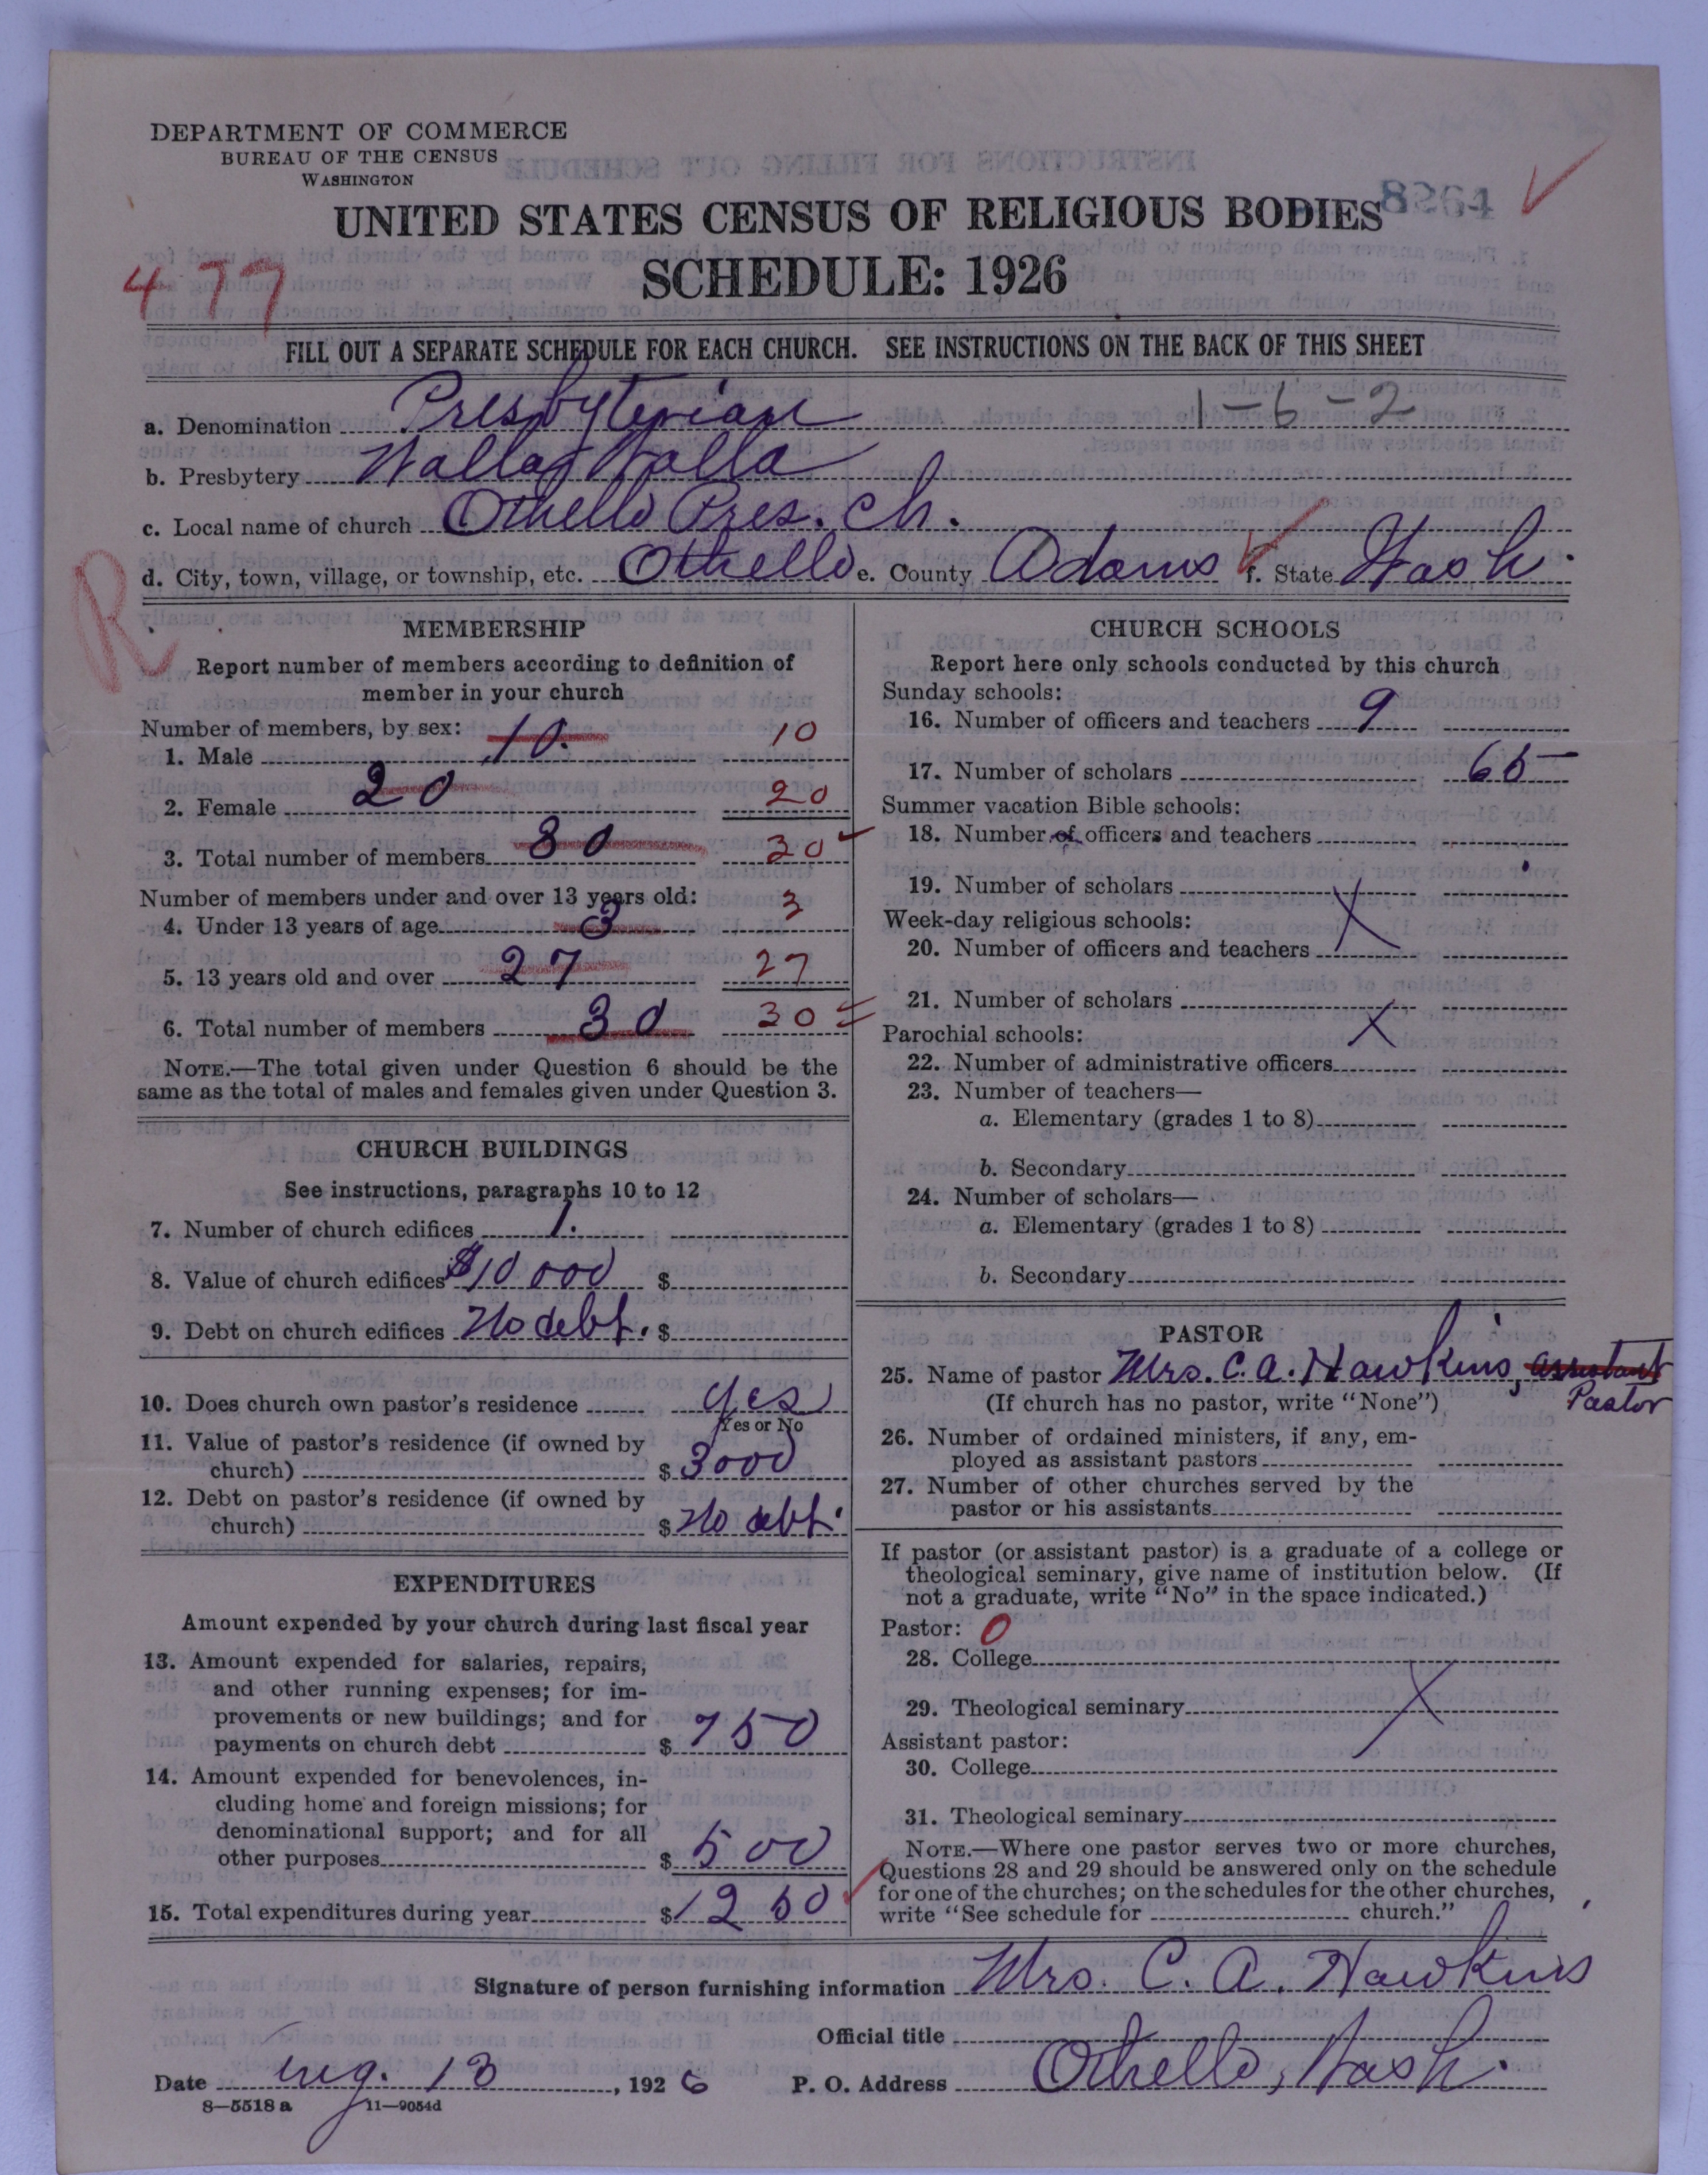 DEPARTMENT OF COMMERCE
BUREAU OF THE CENSUS
WASHINGTON
8264
UNITED STATES CENSUS OF RELIGIOUS BODIES
477
SCHEDULE: 1926
FILL OUT A SEPARATE SCHEDULE FOR EACH CHURCH. SEE INSTRUCTIONS ON THE BACK OF THIS SHEET
1-6-2
a. Denomination Presbyterian
b. Presbytery Walla Walla
c. Local name of church Othello Pres. Ch.
d. City, town, village, or township, etc. Othello e. County Adams f. State Wash.
R
MEMBERSHIP
Report number of members according to definition of
member in your church
Number of members, by sex:
1. Male 10. 10
2. Female 20 20
3. Total number of members 30 30
Number of members under and over 13 years old:
4. Under 13 years of age 3 3
5. 13 years old and over 27 27
6. Total number of members 30 30
NOTE.—The total given under Question 6 should be the
same as the total of males and females given under Question 3.
CHURCH BUILDINGS
See instructions, paragraphs 10 to 12
7. Number of church edifices 1.
8. Value of church edifices $10000 $
9. Debt on church edifices No debt. $
10. Does church own pastor's residence yes
Yes or No
11. Value of pastor's residence (if owned by
church) $ 3000
12. Debt on pastor's residence (if owned by
church) $ No debt.
EXPENDITURES
Amount expended by your church during last fiscal year
13. Amount expended for salaries, repairs,
and other running expenses; for im-
provements or new buildings; and for
payments on church debt $ 750
14. Amount expended for benevolences, in-
cluding home and foreign missions; for
denominational support; and for all
other purposes $ 500
15. Total expenditures during year $ 1250
CHURCH SCHOOLS
Report here only schools conducted by this church
Sunday schools:
16. Number of officers and teachers 9
17. Number of scholars 65
Summer vacation Bible schools:
18. Number of officers and teachers
19. Number of scholars
Week-day religious schools:
20. Number of officers and teachers X
21. Number of scholars
Parochial schools: X
22. Number of administrative officers
23. Number of teachers—
a. Elementary (grades 1 to 8)
b. Secondary
24. Number of scholars—
a. Elementary (grades 1 to 8)
b. Secondary
PASTOR
25. Name of pastor Mrs. C. A. Hawkins, assistant
(If church has no pastor, write "None") Pastor
26. Number of ordained ministers, if any, em-
ployed as assistant pastors
27. Number of other churches served by the
pastor or his assistants
If pastor (or assistant pastor) is a graduate of a college or
theological seminary, give name of institution below. (If
not a graduate, write "No" in the space indicated.)
Pastor: 0
28. College
29. Theological seminary X
Assistant pastor:
30. College
31. Theological seminary
NOTE.—Where one pastor serves two or more churches,
Questions 28 and 29 should be answered only on the schedule
for one of the churches; on the schedules for the other churches,
write "See schedule for church."
Signature of person furnishing information Mrs. C. A. Hawkins
Official title
Date Aug. 13, 1926 P. O. Address Othello, Wash.
8—5518 a 11—9054d